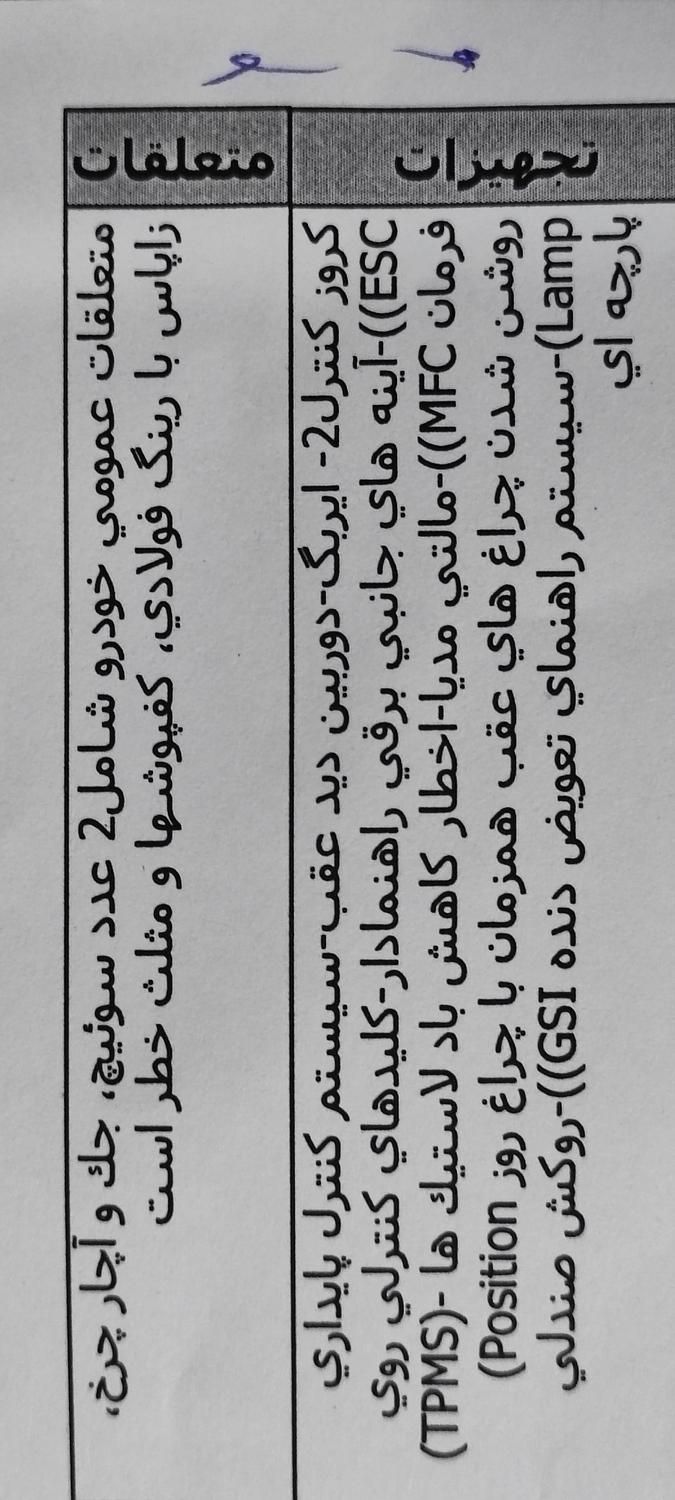 تجهيزات
كروز كنترل2- ايربگ-دوربين ديد عقب-سيستم كنترل پايداري
ESC))-آينه هاي جانبي برقي راهنمادار-كليدهاي كنترلي روي
فرمان MFC))-مالتي مديا-اخطار كاهش باد لاستيك ها -(TPMS)
روشن شدن چراغ هاي عقب همزمان با چراغ روز Position)
Lamp)-سيستم راهنماي تعويض دنده GSI))-روكش صندلي
پارچه اي
متعلقات
متعلقات عمومي خودرو شامل2 عدد سوئيچ، جك و آچار چرخ،
زاپاس با رينگ فولادي، كفپوشها و مثلث خطر است